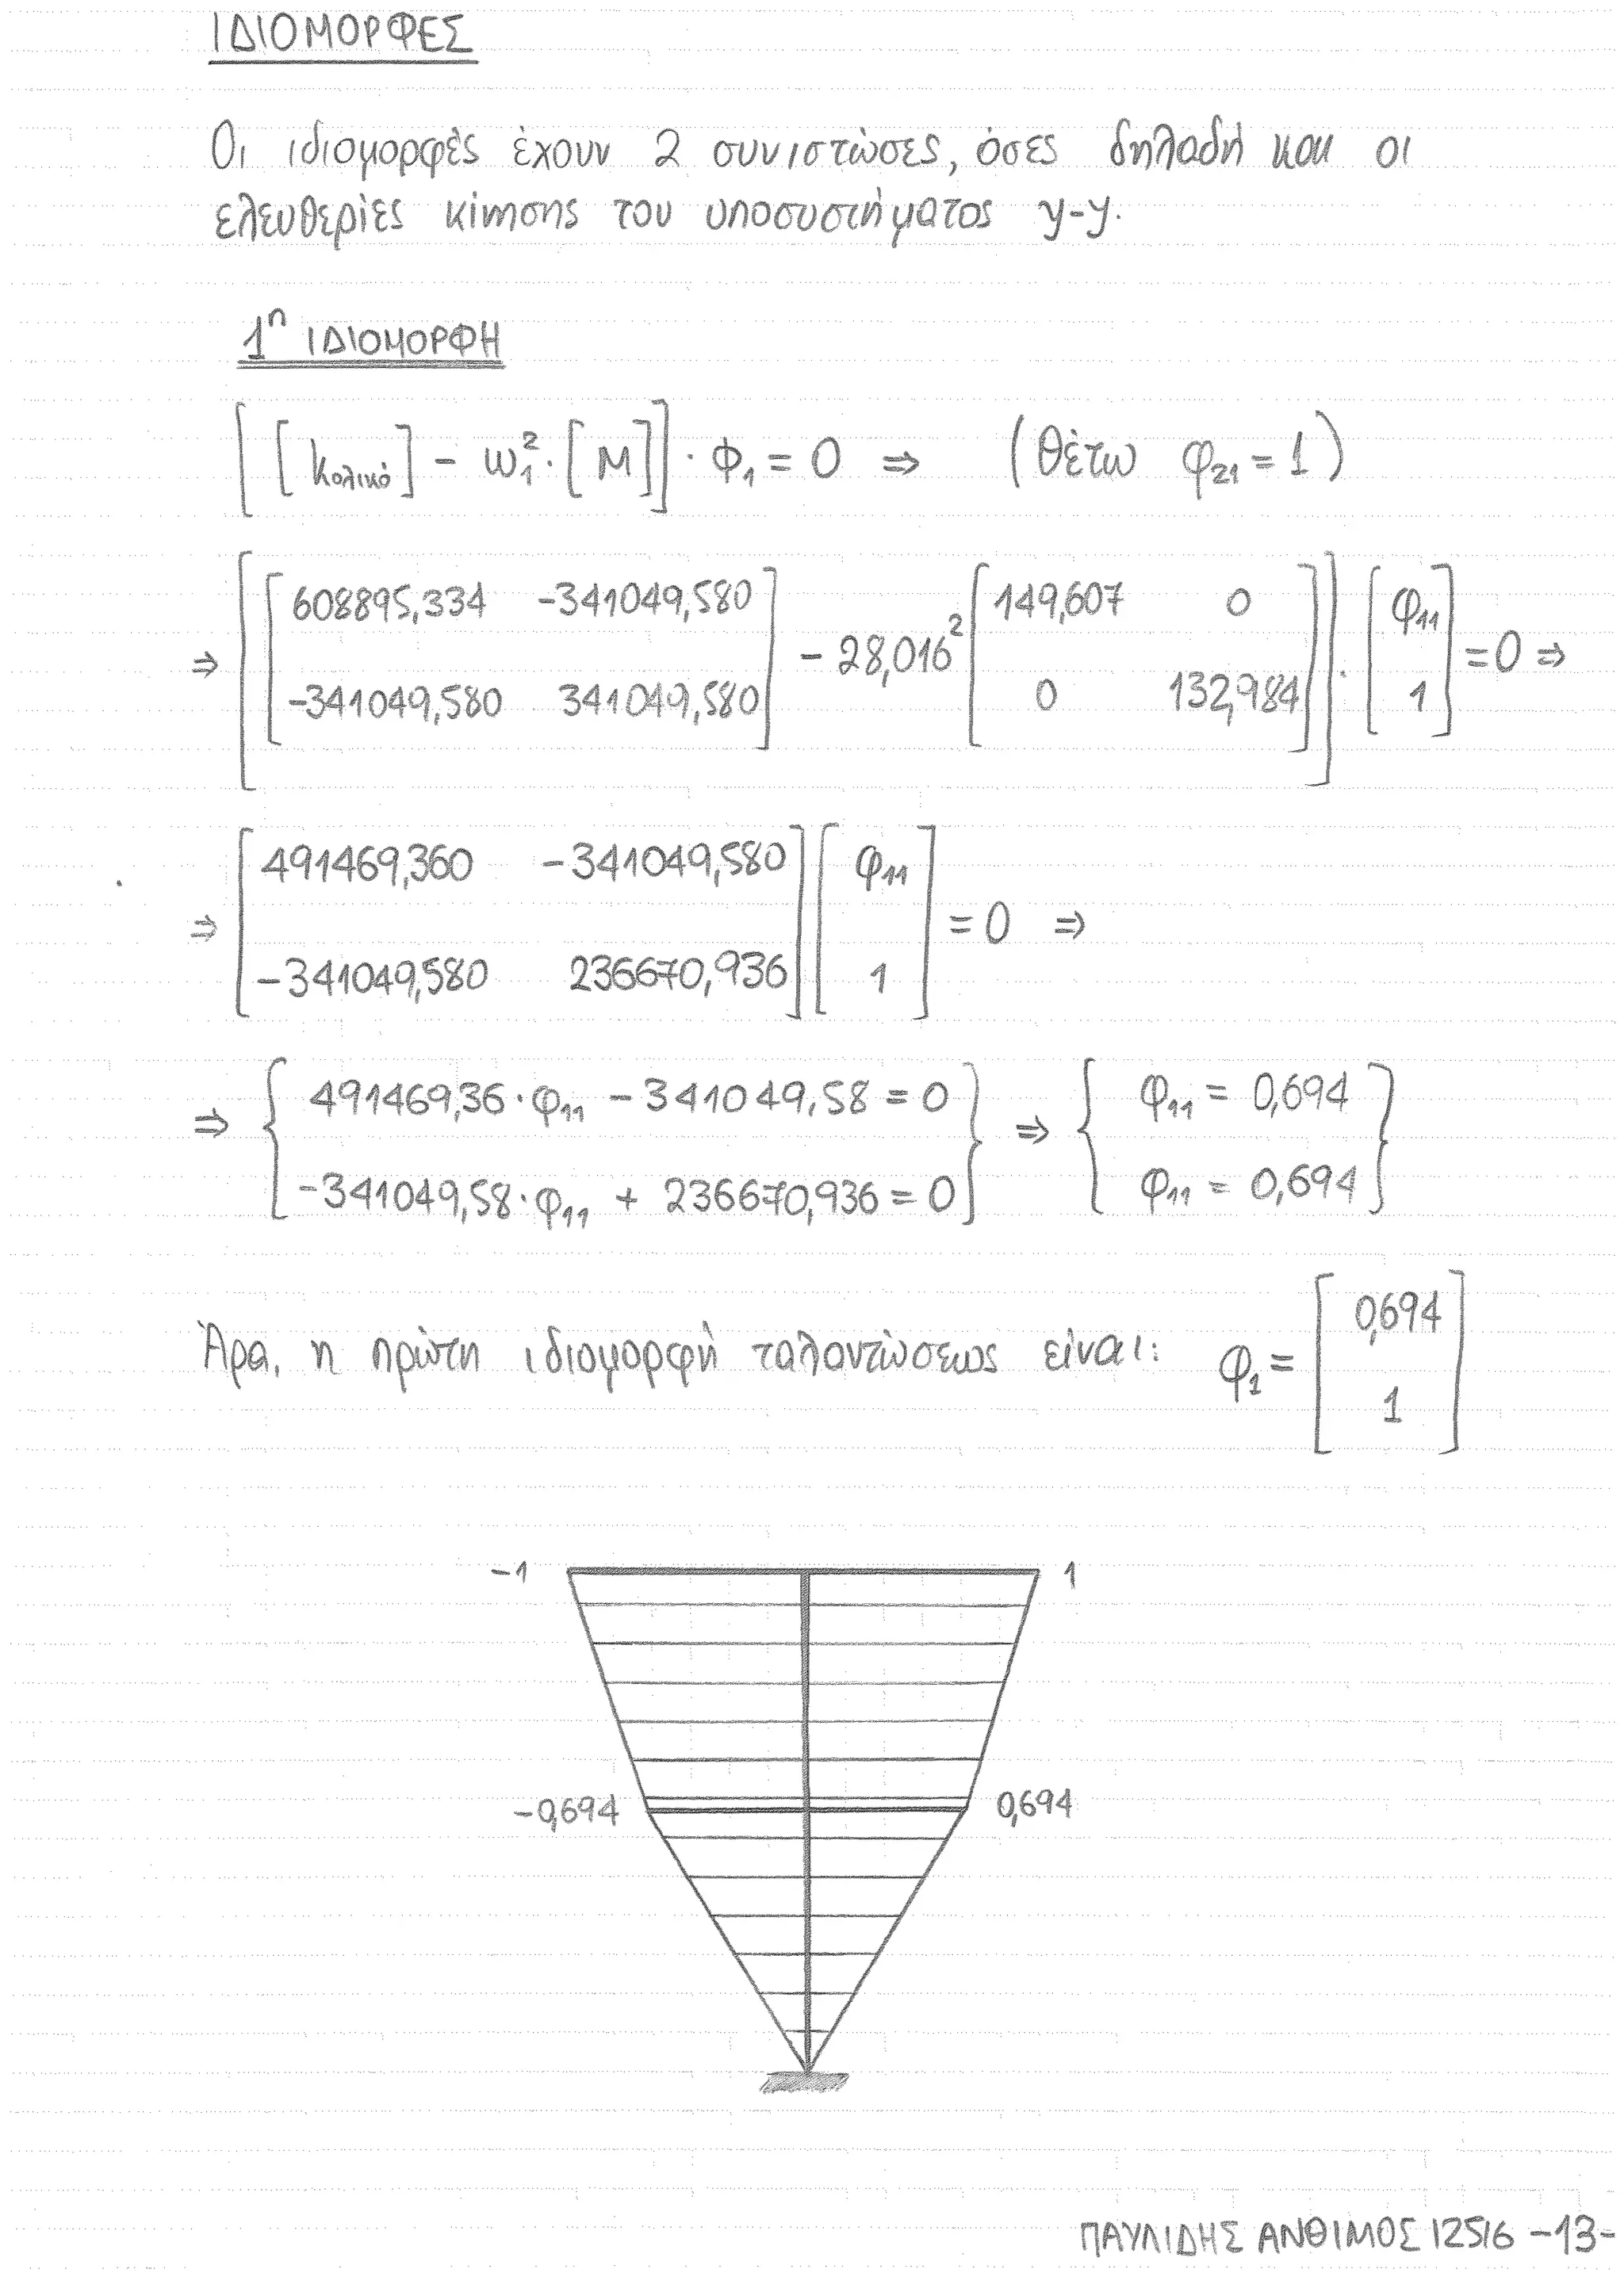 ΙΔΙΟΜΟΡΦΕΣ
Οι ιδιομορφές έχουν 2 συνιστώσες, όσες δηλαδή και οι
ελευθερίες κίνησης του υποσυστήματος y-y.
1η ΙΔΙΟΜΟΡΦΗ
[[Κολικό] - ω₁²·[Μ]]·Φ₁ = 0 ⇒ (θέτω φ₂₁ = 1)
⇒ [[608895,334 -341049,580; -341049,580 341049,580] - 28,016² [149,607 0; 0 132,984]]·[φ₁₁; 1] = 0 ⇒
⇒ [491469,360 -341049,580; -341049,580 236670,936] [φ₁₁; 1] = 0 ⇒
⇒ {491469,36·φ₁₁ - 341049,58 = 0; -341049,58·φ₁₁ + 236670,936 = 0} ⇒ {φ₁₁ = 0,694; φ₁₁ = 0,694}
Άρα, η πρώτη ιδιομορφή ταλαντώσεως είναι: φ₁ = [0,694; 1]
-1 1
-0,694 0,694
ΠΑΥΛΙΔΗΣ ΑΝΘΙΜΟΣ 12516 -13-